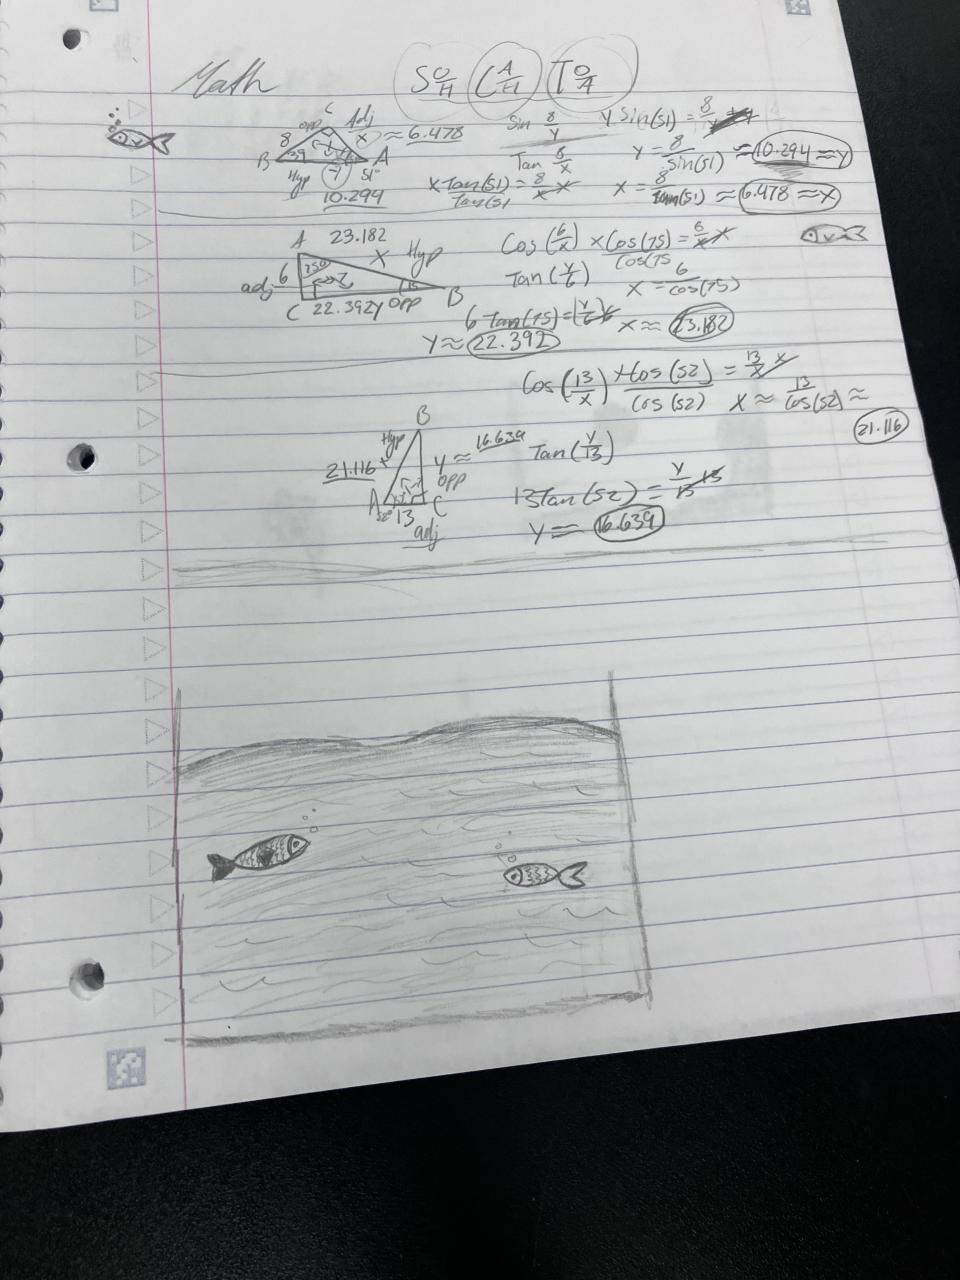 Math S O/H C A/H T O/A
C
opp Adj
8 x ≈ 6.478
B 39 A
Hyp y 51°
10.294
Sin 8/y y Sin(51) = 8/y
Tan 8/x y = 8/Sin(51) ≈ 10.294 ≈ y
x Tan(51)/Tan(51 = 8/x x x = 8/Tan(51) ≈ 6.478 ≈ x
A 23.182
x Hyp
adj 6 75°
C 22.392 y opp B
Cos(6/x) x Cos(75)/Cos(75 = 6/x x
Tan(y/6) x = 6/cos(75)
6 Tan(75) = (y/6) 6 x ≈ 23.182
y ≈ 22.392
Cos(13/x) x Cos(52)/Cos(52) = 13/x x
x ≈ 13/Cos(52) ≈
21.116
B
Hyp
21.116 x y ≈ 16.639
opp
A C
52° 13
adj
Tan(y/13)
13Tan(52) = y/13 13
y ≈ 16.639